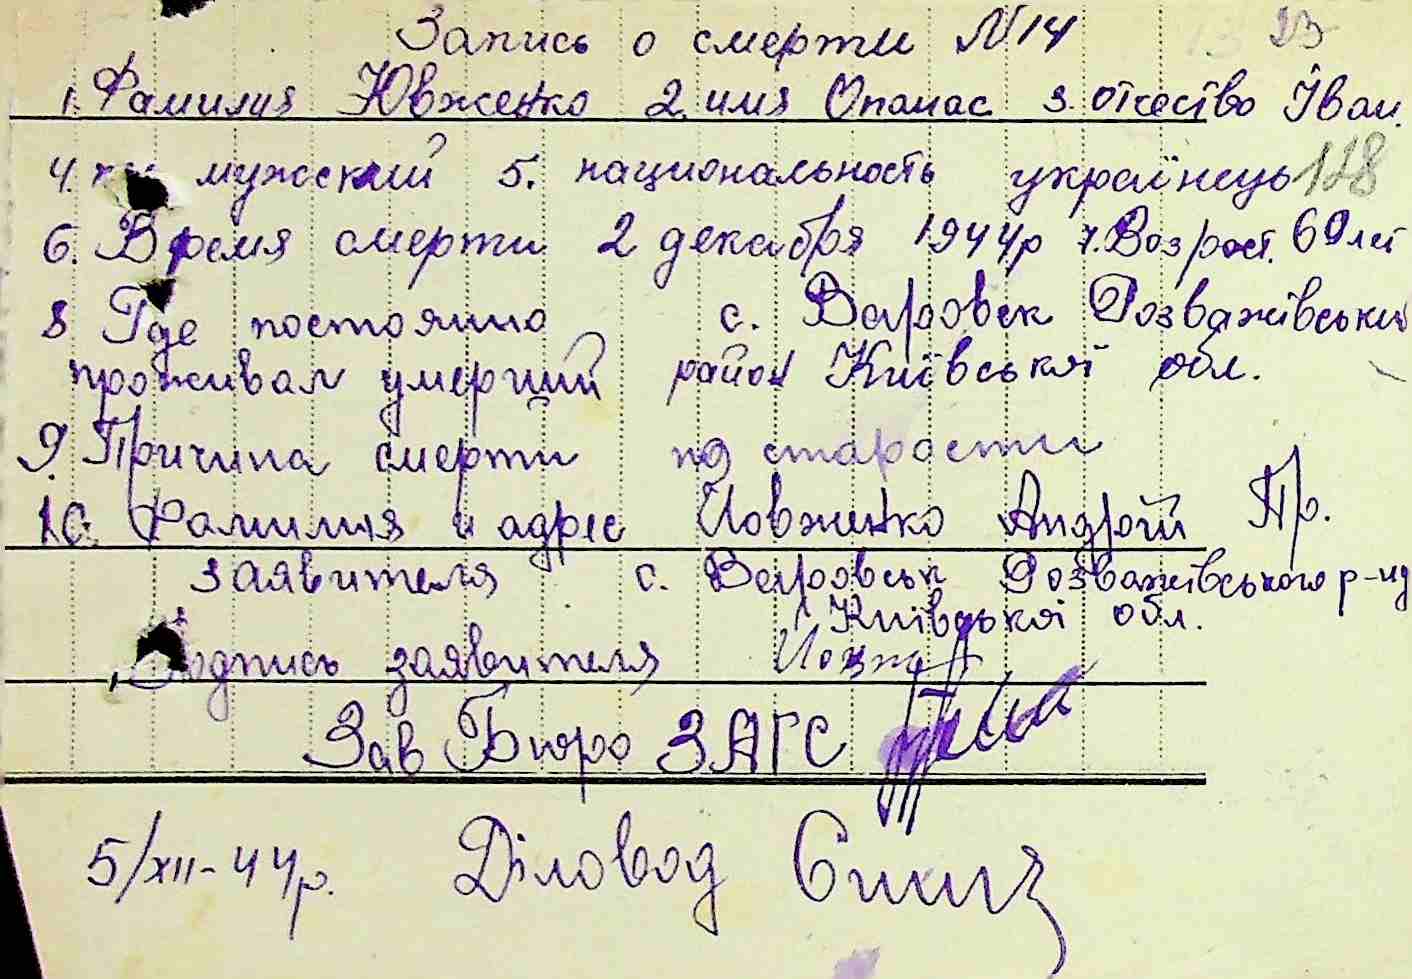 Запись о смерти N 14 23
1. Фамилия Ювженко 2. имя Опанас 3. отчество Іван.
4. мужской 5. национальность українець 128
6. Время смерти 2 декабря 1944р 7. Возраст. 69 лет
8 Где постояно с. Варовск Розважівський
проживал умерший район Київської обл.
9. Причина смерти по старости
10. Фамилия и адрес Йовженко Андрій Пр.
заявителя с. Варовськ Розважівського р-ну
Київської обл.
Подпись заявителя
Зав Бюро ЗАГС
5/XII-44р. Діловод